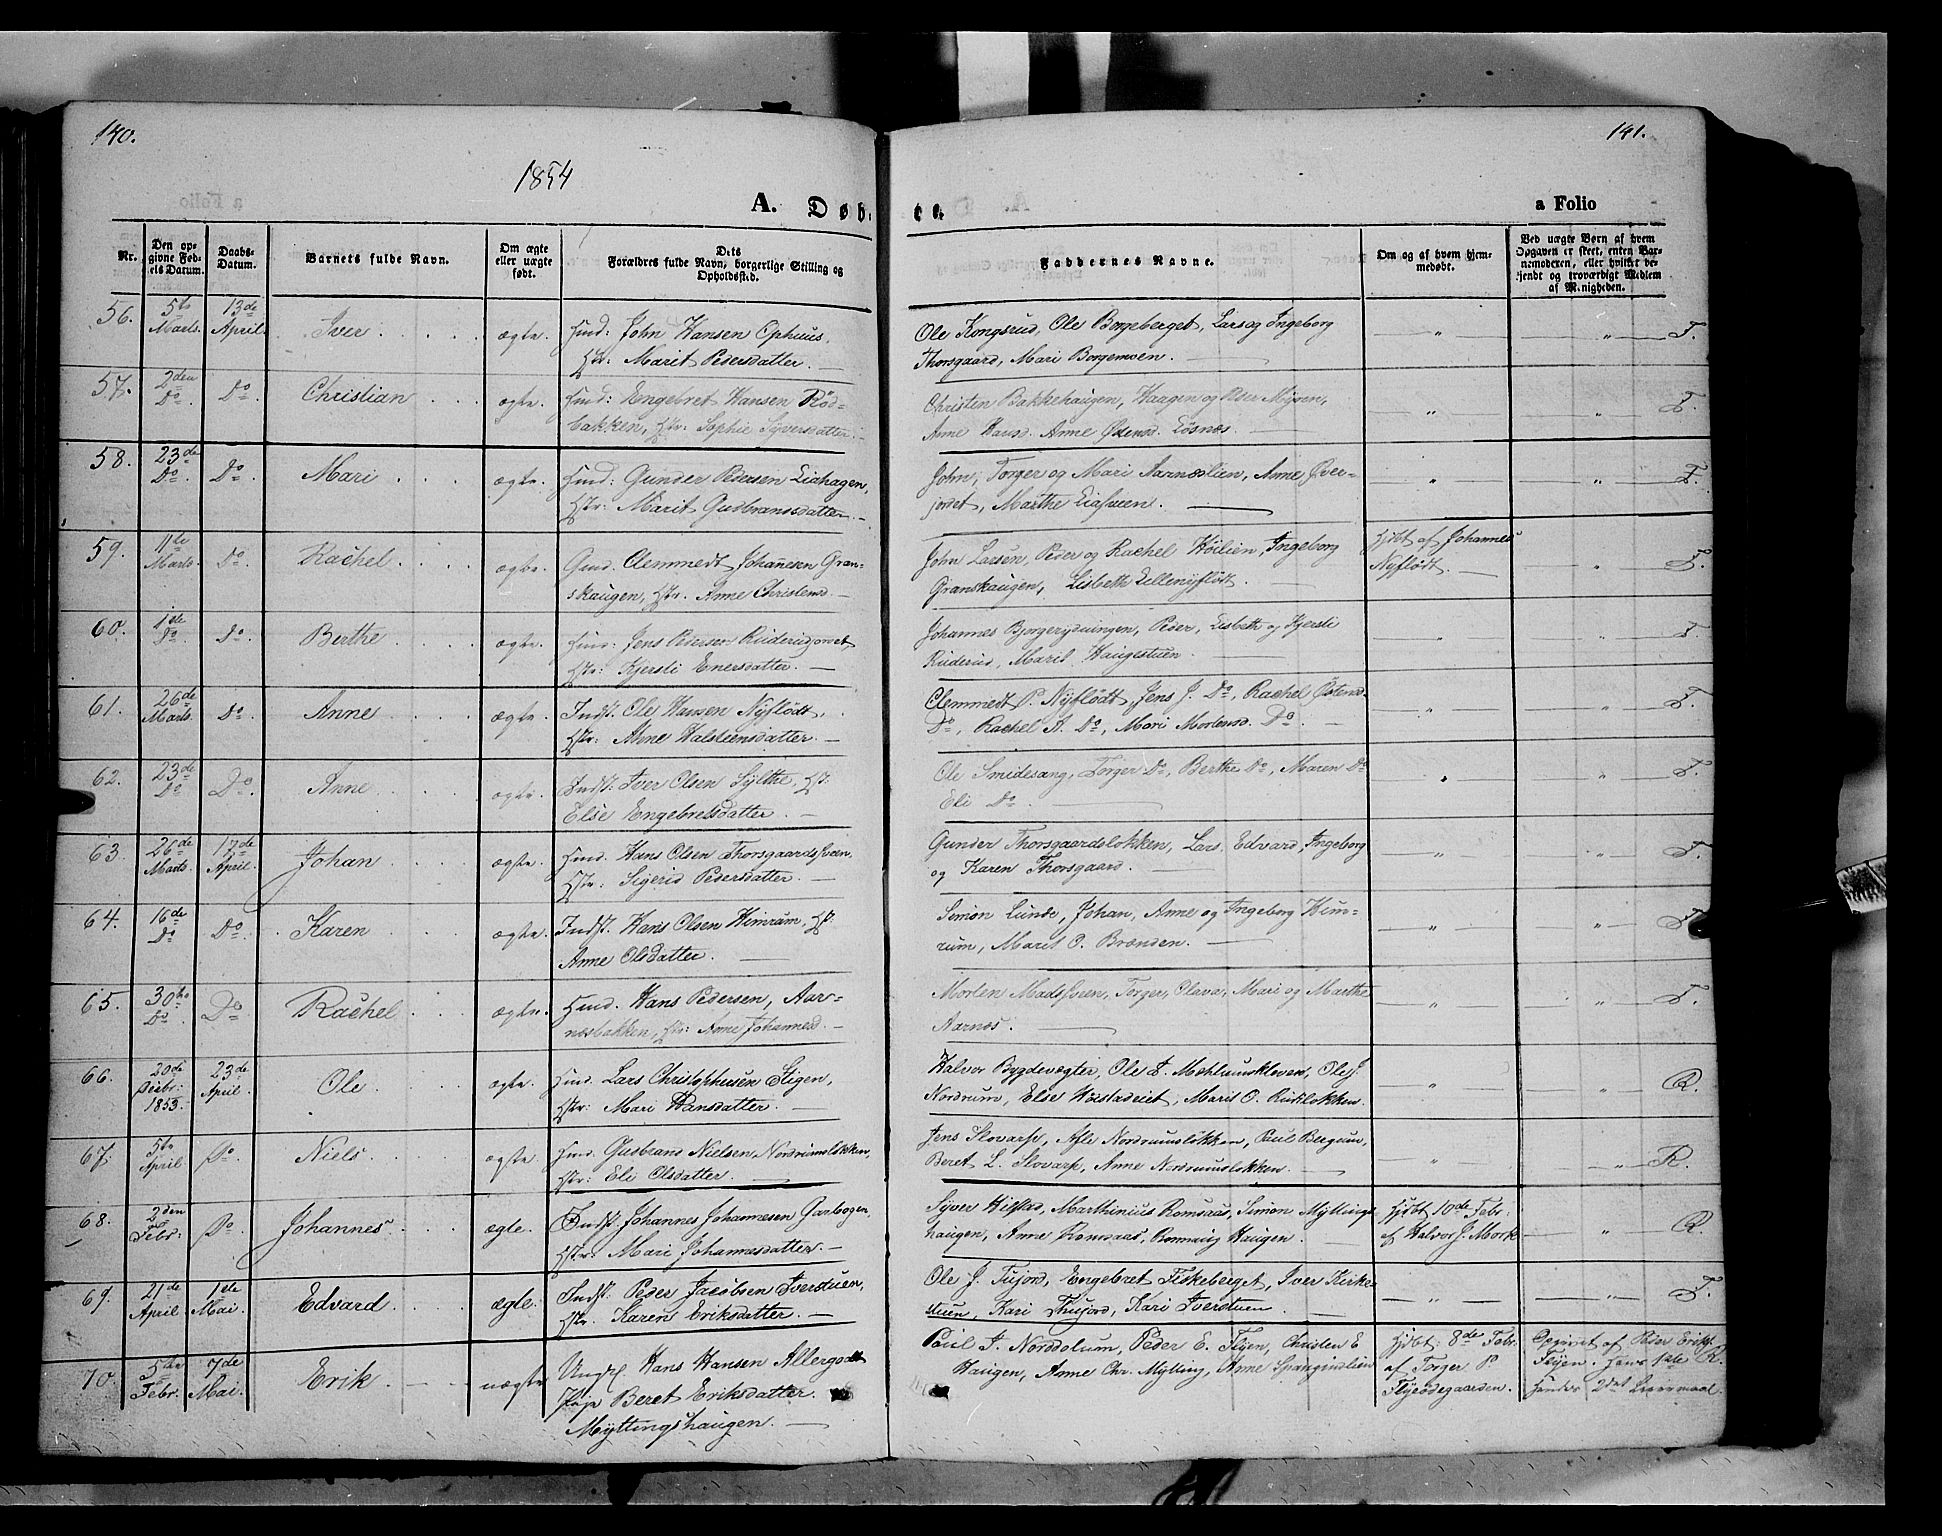 140.
1854
A. Døb-
Nr.
Den op-
givne Fød-
sels Datum.
Daabs-
Datum.
Barnets fulde Navn.
Om ægte
eller uægte
født.
Dets
Forældres fulde Navn, borgerlige Stilling og
Opholdssted.
56. 5te Marts. 13de April. Iver ægte.
Hmd: John Hansen Ophuus,
Hstr: Marit Pedersdatter.
57. 2den Do. Do. Christian ægte.
Hmd: Engebret Hansen Rød-
bakken, Hstr: Sophie Syversdatter.
58. 23de Do. Do. Mari ægte.
Hmd: Gunder Pedersen Liahagen,
Hstr: Marit Gudbransdatter.
59. 11te Marts. Do. Rachel ægte.
Gmd. Clemmedt Johannesen Gran-
skaugen, Hstr. Anne Christensd.
60. 1de Do. Do. Berthe ægte.
Hmd: Jens Pedersen Ruderudjordet
Hstr: Kjersti Enersdatter.
61. 26de Marts. Do. Anne ægte.
Indst. Ole Hansen Nyflødt,
Hstr: Anne Halsteensdatter.
62. 23de Do. Do. Anne ægte.
Indst: Iver Olsen Sylthe, Hst:
Else Engebretsdatter.
63. 26de Marts. 17de April. Johan ægte.
Hmd. Hans Olsen Thorsgaardsveen,
Hstr: Sigerid Pedersdatter.
64. 16de Do. Do. Karen ægte.
Indst. Hans Olsen Himrum, Hst.
Anne Olsdatter.
65. 30te Do. Do. Rachel ægte.
Hmd. Hans Pedersen, Aar-
næsbakken, Hstr: Anne Johannesd.
66. 20de Decbr: 1853. 23de April. Ole ægte.
Hmd. Lars Christophersen Stigen,
Hstr: Mari Hansdatter.
67. 5te April Do. Niels ægte.
Hmd. Gudbrand Nielsen Nordrumsløkken,
Hstr: Eli Olsdatter.
68. 2den Febr: Do. Johannes ægte.
Indst. Johannes Johannesen Garbogen,
Hstr: Mari Johannesdatter.
69. 21de April 1de Mai. Edvard ægte.
Indst. Peder Jacobsen Iverstuen,
Hstr. Karen Eriksdatter.
70. 5te Febr. 7de Mai. Erik uægte
Ungk. Hans Hansen Allergodt
Pige Beret Eriksdatter
Myttingshaugen.
141.
te.
a Folio
Faddernes Navne.
Om og af hvem hjem-
medøbt.
Ved uægte Børn af hvem
Opgaven er skeet, enten Bar-
nemoderen, eller hvilket be-
kjendt og troværdigt Medlem
af Menigheden.
Ole Kongsrud, Ole Borgeberget, Lars og Ingeborg
Thorsgaard, Mari Borgemoen. „ „ T.
Christen Bakkehaugen, Haagen og Peder Myren,
Anne Hansd. Anne Østensd. Løsnæs. „ „ T.
John, Torger og Mari Aarneslien, Anne Øver-
jordet, Marthe Liasveen. „ „ T.
John Larsen, Peder og Rachel Høilien, Ingeborg
Granskaugen, Lisbeth Lillenyflødt. Hjdbt af Johannes
Nyflødt. „ T.
Johannes Borgerydningen, Peder, Lisbeth og Kjersti
Ruderud, Marit Haugestuen. „ „ T.
Clemmedt P. Nyflødt, Jens J. Do, Rachel Østensd.
Do, Rachel A. Do, Mari Mortensd. Do. „ „ T.
Ole Smidesang, Torger Do, Berthe Do, Maren Do
Eli Do. „ „ T.
Gunder Thorsgaardsløkken, Lars, Edvard, Ingeborg
og Karen Thorsgaard. „ „ T.
Simon Lunde, Johan, Anne og Ingeborg Him-
rum, Marit O. Brænden. „ „ T.
Morten Madsveen, Torger, Olava, Mari og Marthe
Aarnæs. „ „ T.
Halvor Bygdevægter, Ole T. Mæhlumskleven, Ole J.
Nordrum, Else Holstadeiet, Marit O. Rudsløkken. „ „ R.
Jens Slovarp, Ole Nordrumsløkken, Paul Bergum,
Beret L. Slovarp, Anne Nordrumsløkken. „ „ R.
Syver Hilstad, Marthinius Romsaas, Simon Myttings-
haugen, Anne Romsaas, Ronnaug Haugen. Hjdbt 10de Febr:
af Halvor J. Mork „ R.
Ole J. Tujord, Engebret Fiskeberget, Iver Kirke-
stuen, Kari Thujord, Kari Iverstuen „ „ T.
Paul T. Norddolum, Peder E. Flyen, Christen E
Haugen, Anne Chr. Mytting, Anne Spangruslien
Hjdbt: 8de Febr.
af Torger P.
Flyeødegaarden.
Opgivet af Peder Eriks.
Flyen. Hans 1ste R.
Hendes 2det Leiermaal.